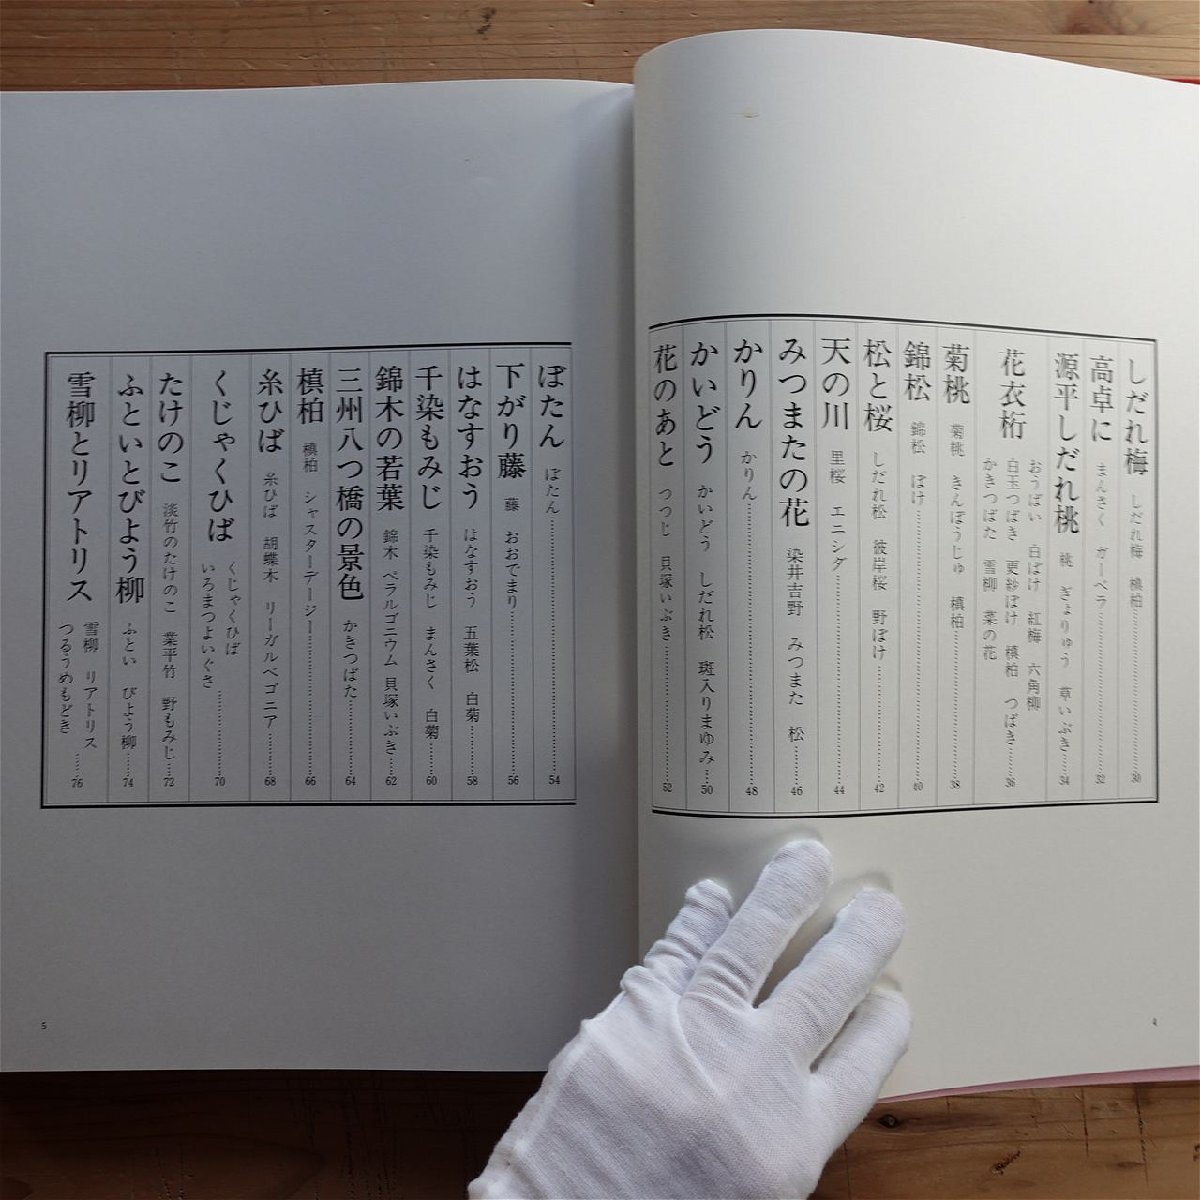 しだれ梅 しだれ梅 槙柏 30
高卓に まんさく ガーベラ 32
源平しだれ桃 桃 ぎょりゅう 草いぶき 34
花衣桁 おうばい 白ぼけ 紅梅 六角柳
白玉つばき 更紗ぼけ 槙柏 つばき 36
かきつばた 雪柳 菜の花
菊桃 菊桃 きんぽうじゅ 槙柏 38
錦松 錦松 ぼけ 40
松と桜 しだれ松 彼岸桜 野ぼけ 42
天の川 里桜 エニシダ 44
みつまたの花 染井吉野 みつまた 松 46
かりん かりん 48
かいどう かいどう しだれ松 斑入りまゆみ 50
花のあと つつじ 貝塚いぶき 52
4
ぼたん ぼたん 54
下がり藤 藤 おおでまり 56
はなすおう はなすおう 五葉松 白菊 58
千染もみじ 千染もみじ まんさく 白菊 60
錦木の若葉 錦木 ペラルゴニウム 貝塚いぶき 62
三州八つ橋の景色 かきつばた 64
槙柏 槙柏 シャスターデージー 66
糸ひば 糸ひば 胡蝶木 リーガルベゴニア 68
くじゃくひば くじゃくひば
いろまつよいぐさ 70
たけのこ 淡竹のたけのこ 業平竹 野もみじ 72
ふといとびよう柳 ふとい びよう柳 74
雪柳とリアトリス 雪柳 リアトリス
つるうめもどき 76
5